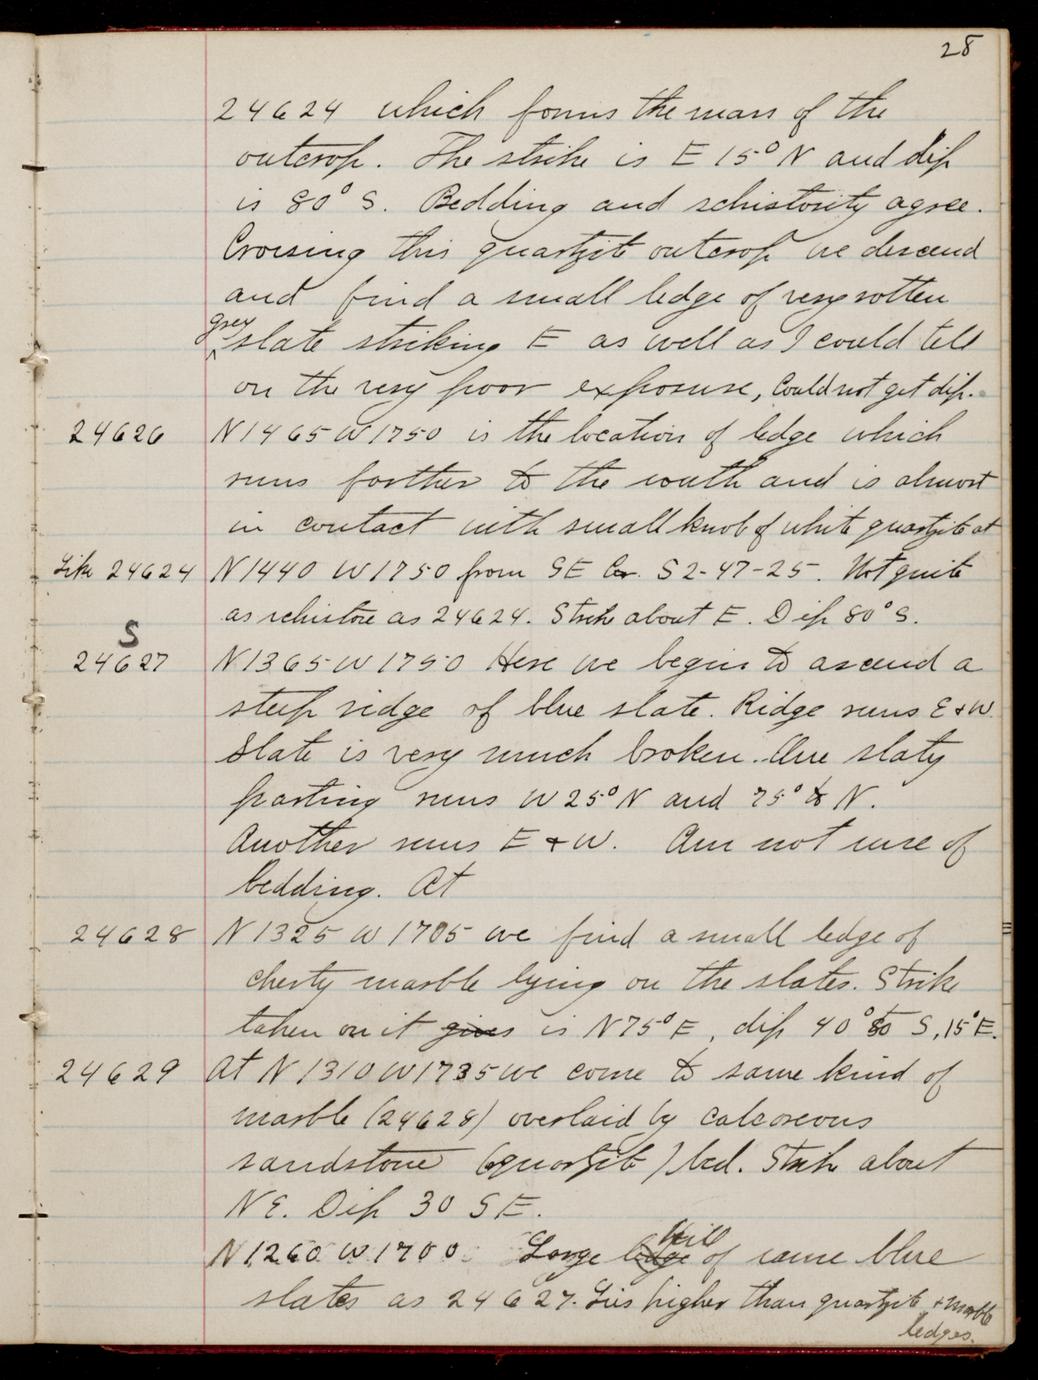 28
24624 which forms the mass of the
outcrop. The strike is E 15° N and dip
is 80° S. Bedding and schistosity agree.
Crossing this quartzite outcrop we descend
and find a small ledge of very rotten
grey
^ slate striking E as well as I could tell
on the very poor exposure, Could not get dip.
24626 N1465 W1750 is the location of ledge which
runs farther to the south and is almost
in contact with small knob of white quartzite at
Like 24624 N1440 W1750 from SE Cor. S 2-47-25. Not quite
as schistose as 24624. Strike about E. Dip 80° S.
S
24627 N1365 W1750 Here we begin to ascend a
steep ridge of blue slate. Ridge runs E+W.
Slate is very much broken. One slaty
parting runs W 25° N and 75° to N.
Another runs E + W. Am not sure of
bedding. At
24628 N1325 W 1705 we find a small ledge of
cherty marble lying on the slates. Strike
taken on it gives is N75° E, dip 40° to S, 15° E.
24629 At N 1310 W1735 we come to same kind of
marble (24628) overlaid by calcareous
sandstone (quartzite) bed. Strike about
NE. Dip 30 SE.
Hill
N1260 W1700 Large ledge of same blue
slates as 24627. Lies higher than quartzite + marble
ledges.